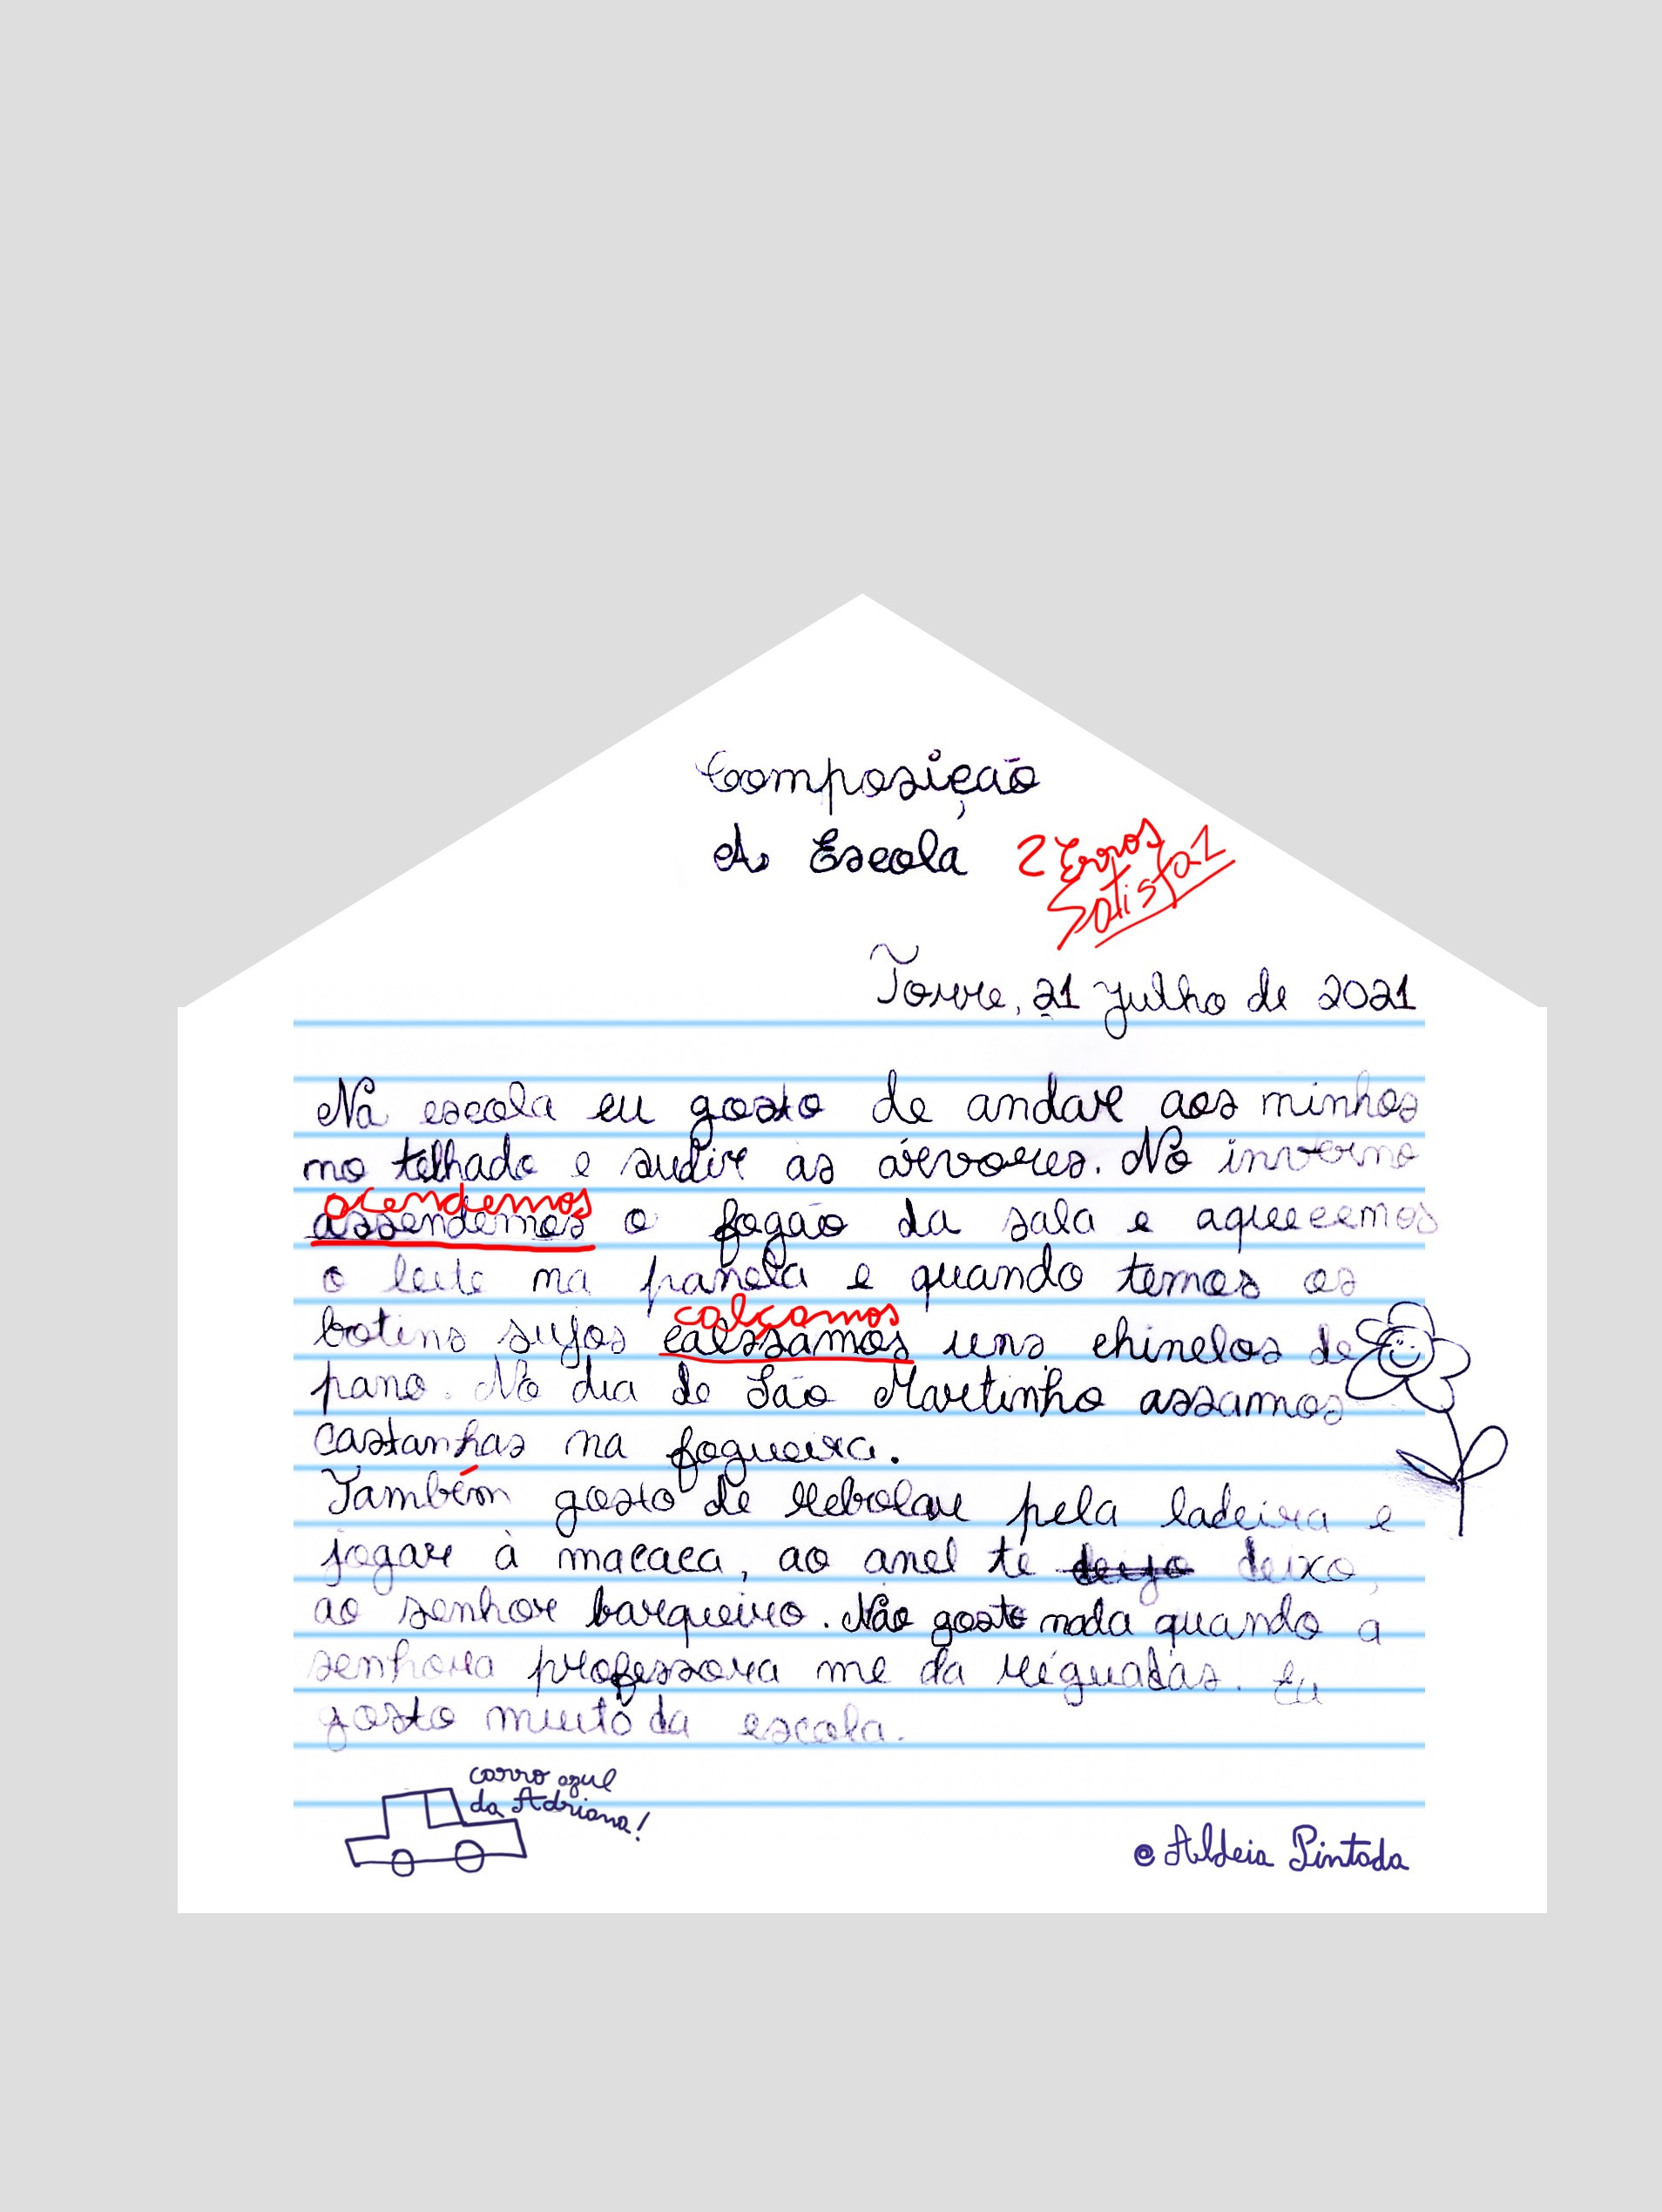 Composição
A Escola
2 Erros
Satisfaz
Torre, 21 julho de 2021
Na escola eu gosto de andar aos minhos
no telhado e subir às árvores. No inverno
acendemos
assendemos o fogão da sala e aquecemos
o leite na panela e quando temos os
calçamos
botins sujos calssamos uns chinelos de
pano. No dia de São Martinho assamos
castanhas na fogueira.
Também gosto de rebolar pela ladeira e
jogar à macaca, ao anel te deixo,
ao senhor barqueiro. Não gosto nada quando a
senhora professora me da réguadas. Eu
gosto muito da escola.
carro azul
da Adriana!
@ Aldeia Pintada